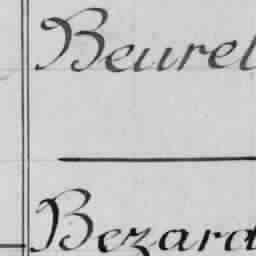 Beurel
Bezard